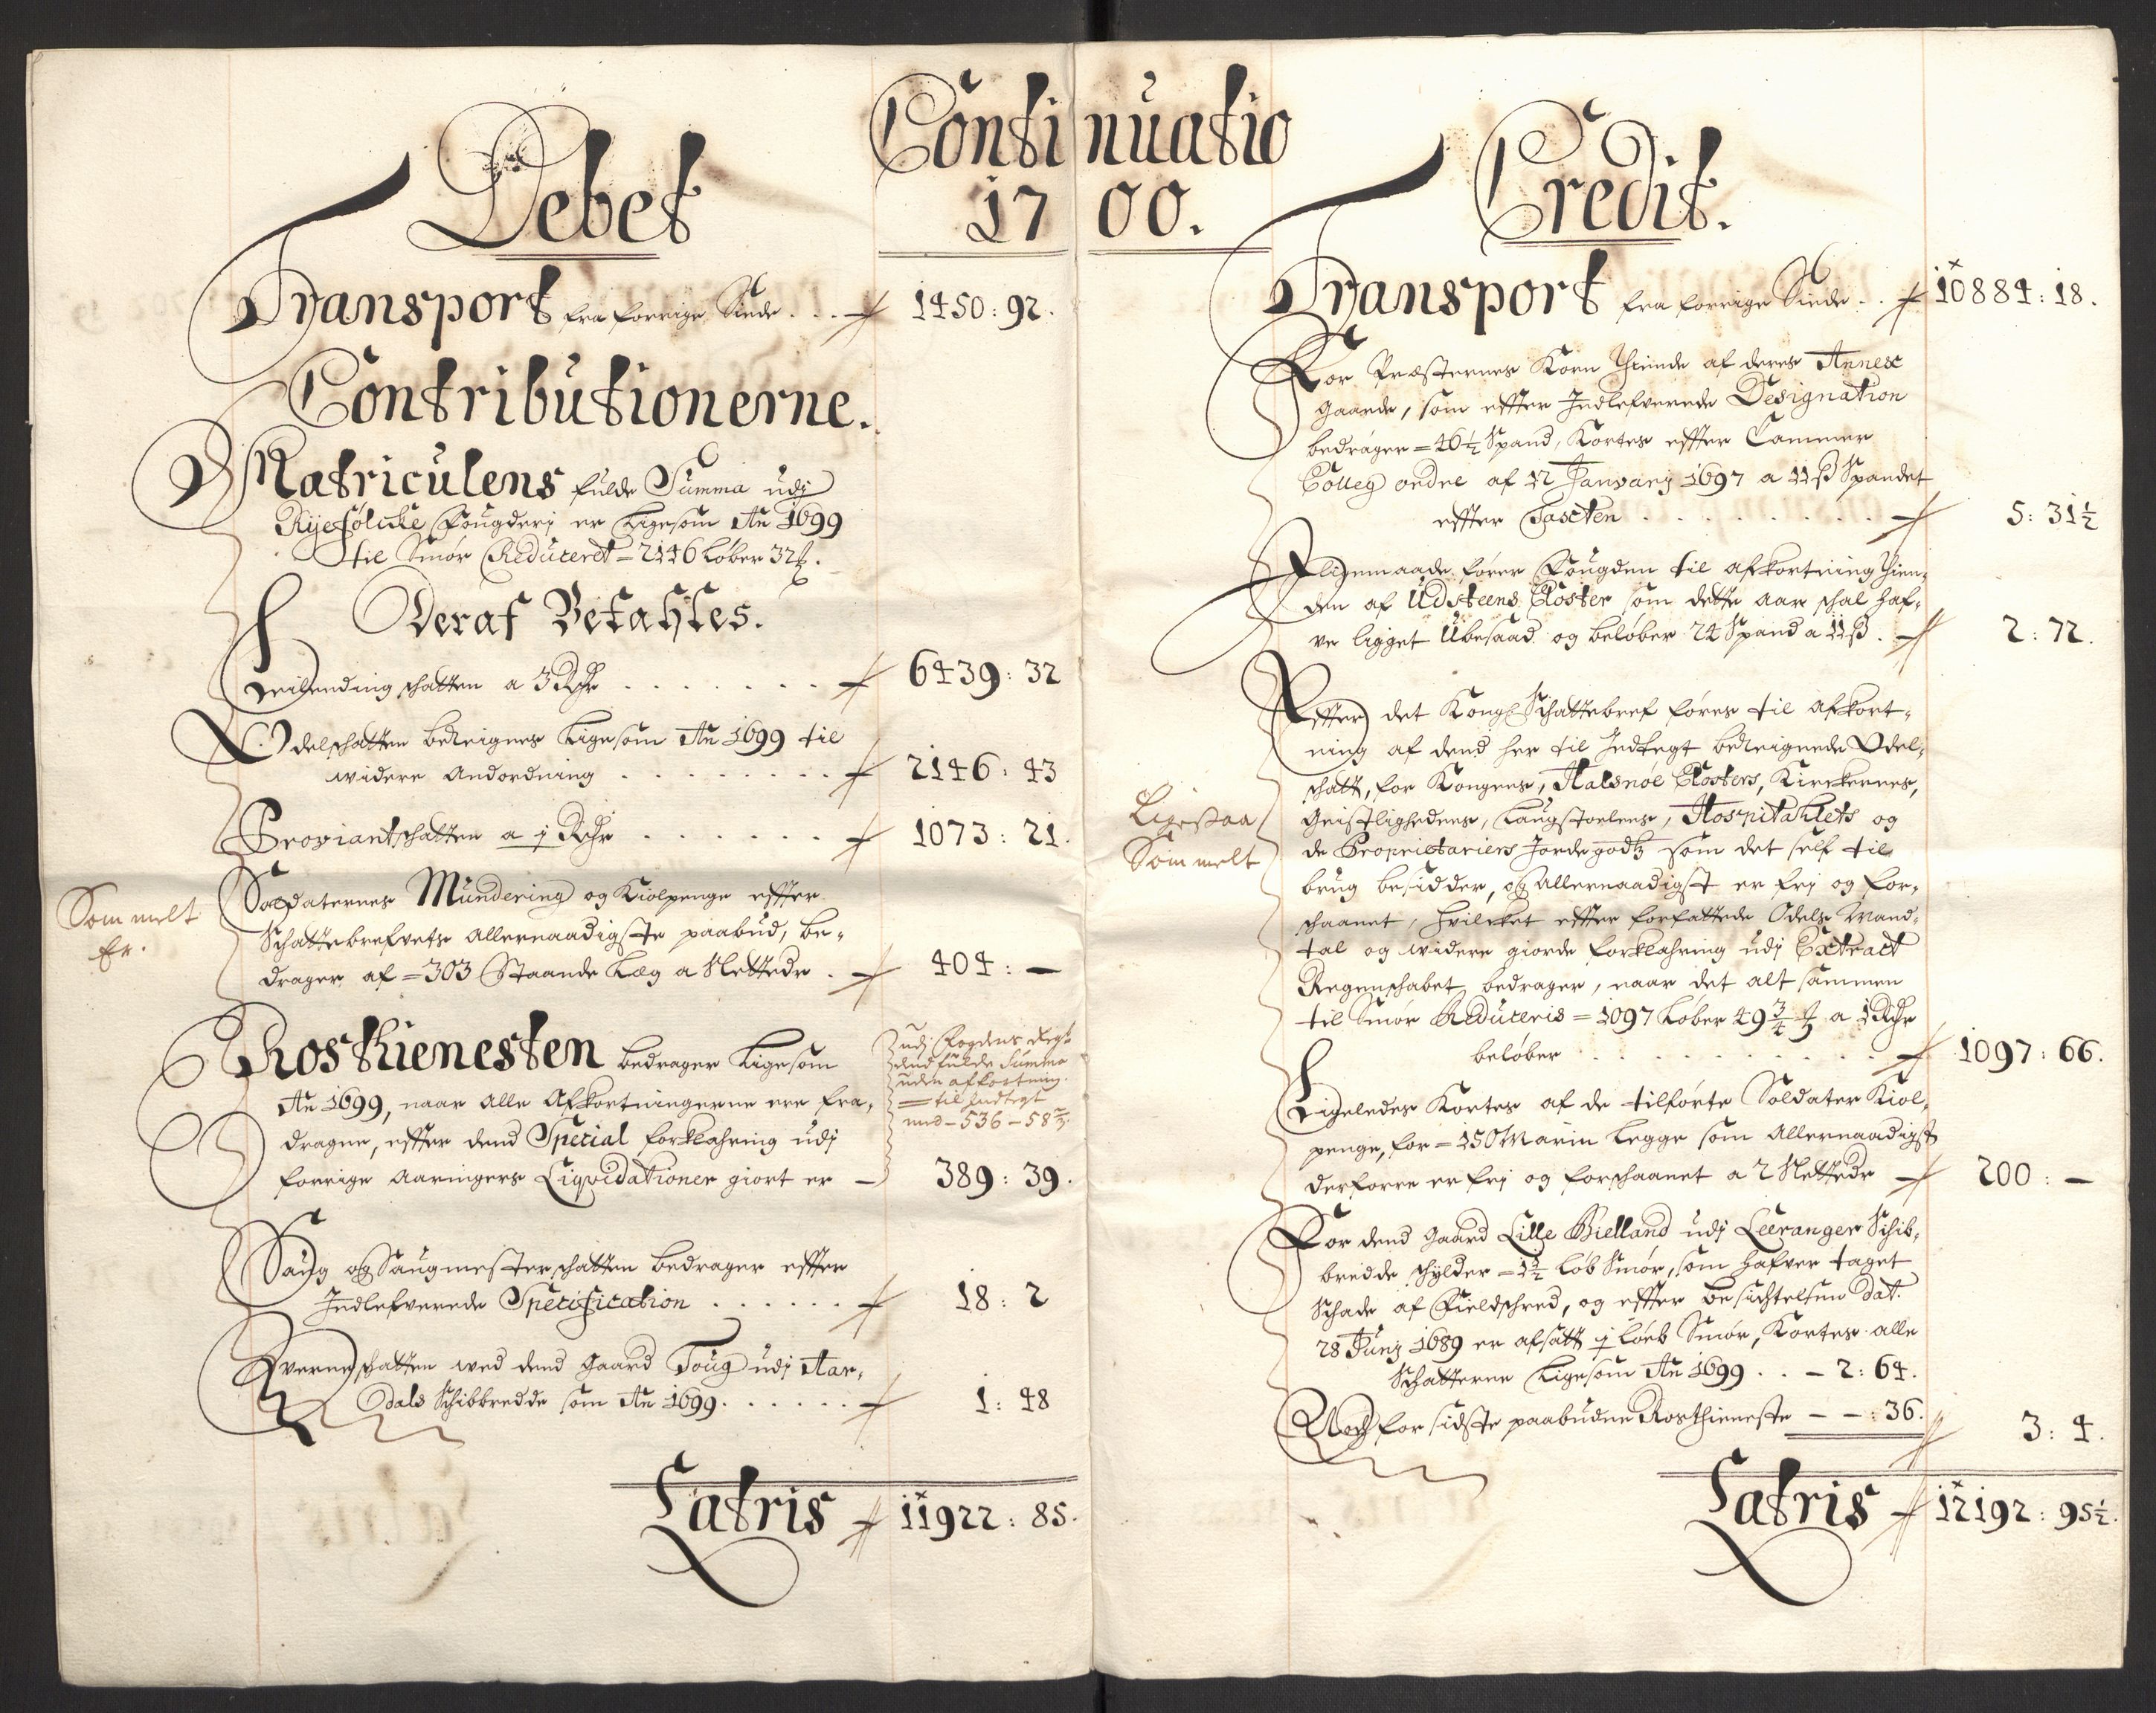 Continuatio
1700.
Debet
Transport fra forrige Siide . . . 1450: 92.
Contributionerne.
Matriculens fulde Summa udj
Ryefølcke Fougderj er ligesom Ao 1699
til Smør Reduceret = 2146 Løber 32 ℔.
Deraf Betahles.
Leilending schatten a 3 Rdr . . . . . . . 6439: 32
Odelschatten beReignes ligesom Ao 1699 til
widere Andordning . . . . . . . . 2146: 43
Proviantschatten a ½ Rdr . . . . . . . 1073: 21.
Som melt
Er.
Soldaternes Mundering og Kiolpenge effter
Schattebrefvets allernaadigste paabud, be-
drager af = 303 Staande Læg a Slettedr . 404: —
Rosthienesten bedrager ligesom
Ao 1699, naar alle Afkortningerne ere fra-
dragne, effter dend Special forklahring udj
forrige Aaringers Liqvidationer giort er — 389: 39.
udj Fogdens Regnsk
dend fulde Summa
uden afkortning
til Indtegt
med – 536 – 58⅔.
Saug og Saugmesterschatten bedrager effter
Indlefverede Specification . . . . . . 18: 2
Qverneschatten wed dend gaard Toug udj Aar-
dals Schibbredde som Ao 1699 . . . . . . 1: 48
Latris 11922: 85.
Credit.
Transport fra forrige Siide . . 10884: 18.
For Præsternes Korn Thiende af deres Annex
gaarde, som effter Indlefverede Designation
bedrager = 46½ Spand, Kortes effter Cammer
Colleg ordre af 12 Januarj 1697 a 11 ß Spandet
effter Taxten . . . . . . . . . 5: 31½
J ligemaade fører Fougden til afkortning Thien-
den af Udsteens Closter som dette aar schal haf-
ve ligget Ubesaad og beløber 24 Spand a 11 ß . 2: 72.
Effter det Kongl Schattebref føres til afkort-
ning af dend her til Indtegt beReignede Odel-
schatt, for Kongens, Halsnøe Closters, Kirckernes,
Geistlighedens, Laugstoelens, Hospitahlets og
de Proprietariers Jordegodtz som det self til
brug besidder, og allernaadigst er frj og for-
schaanet, hvilcket effter forfattede Odels Mand-
tal og widere giorde forklahring udj Extract
Regenschabet bedrager, naar det alt sammen
til Smør Reduceris = 1097 Løber 49¾ ℔ a 1 Rdr
beløber . . . . . . . . . . . 1097: 66.
Ligesaa
Som melt
Ligeledes Kortes af de tilførte Soldater Kiol-
penge, for = 150 Marin Legge som allernaadigst
derforre er frj og forschaanet a 2 Slettedr 200: —
For dend gaard Lille Bielland udj Leeranger Schib-
bredde schylder = 1½ Løb Smør, som hafver taget
Schade af Fieldschred, og effter besichtelsen dat.
28 Junj 1689 er afsatt ½ Løeb Smør, Kortes alle
Schatterne ligesom Ao 1699 . . – 2: 64.
Noch for sidste paabudne Rosthieneste – – : 36. 3: 4.
Latris 12192: 95½.